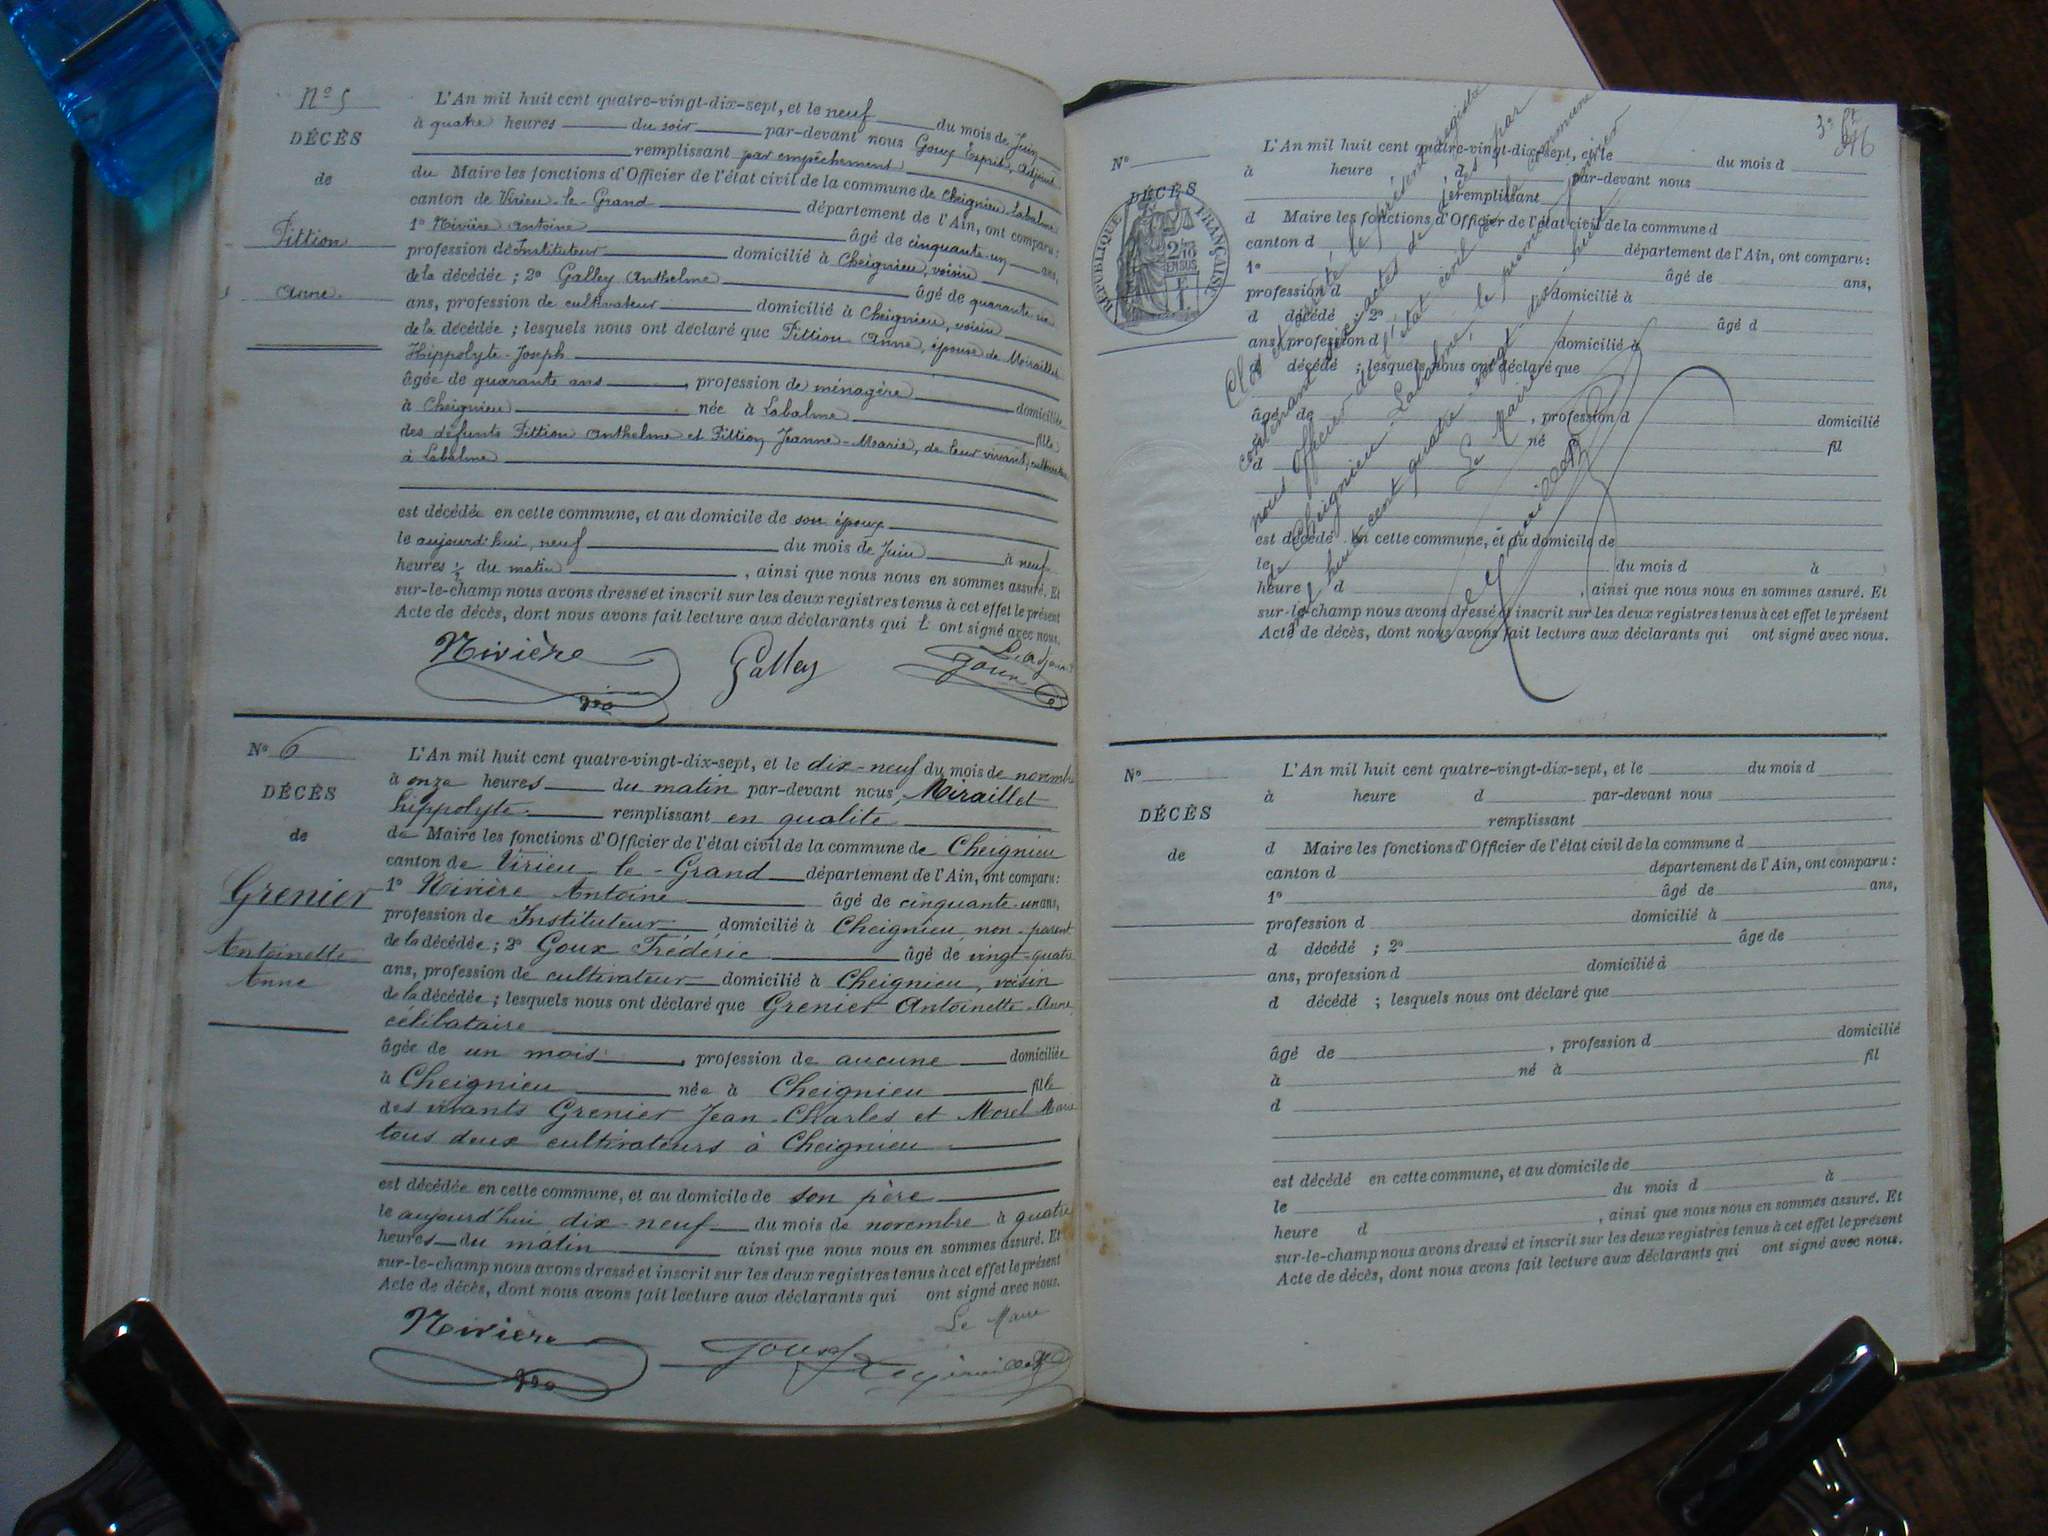 Nº 5
DÉCÈS
de
Pittion
Anne
L'An mil huit cent quatre-vingt-dix-sept, et le neuf du mois de Juin
à quatre heures du soir par-devant nous Goux Esprit, Adjoint
remplissant par empêchement
du Maire les fonctions d'Officier de l'état civil de la commune de Cheignieu-Labalme
canton de Virieu-le-Grand département de l'Ain, ont comparu :
1º Rivière Antoine âgé de cinquante-un ans,
profession de Instituteur domicilié à Cheignieu, voisin
de la décédée ; 2º Galley Anthelme âgé de quarante-
ans, profession de cultivateur domicilié à Cheignieu, voisin
de la décédée ; lesquels nous ont déclaré que Pittion Anne, épouse de Miraillet
Hippolyte-Joseph
âgée de quarante ans, profession de ménagère domiciliée
à Cheignieu née à Labalme fille
des défunts Pittion Anthelme et Pittion Jeanne-Marie, de leur vivant, cultivateurs
à Labalme
est décédée en cette commune, et au domicile de son époux
le aujourd'hui, neuf du mois de Juin à neuf
heures ½ du matin, ainsi que nous nous en sommes assuré. Et
sur-le-champ nous avons dressé et inscrit sur les deux registres tenus à cet effet le présent
Acte de décès, dont nous avons fait lecture aux déclarants qui ont signé avec nous.
L'Adjoint
Rivière Galley Goux
Nº 6
DÉCÈS
de
Grenier
Antoinette
Anne
L'An mil huit cent quatre-vingt-dix-sept, et le dix-neuf du mois de novembre
à onze heures du matin par-devant nous, Miraillet
hippolyte remplissant en qualité
de Maire les fonctions d'Officier de l'état civil de la commune de Cheignieu
canton de Virieu-le-Grand département de l'Ain, ont comparu :
1º Rivière Antoine âgé de cinquante-un ans,
profession de Instituteur domicilié à Cheignieu non-parent
de la décédée ; 2º Goux Frédéric âgé de vingt-quatre
ans, profession de cultivateur domicilié à Cheignieu, voisin
de la décédée ; lesquels nous ont déclaré que Grenier Antoinette-Anne
célibataire
âgée de un mois, profession de aucune domiciliée
à Cheignieu née à Cheignieu fille
des vivants Grenier Jean-Charles et Morel Marie
tous deux cultivateurs à Cheignieu
est décédée en cette commune, et au domicile de son père
le aujourd'hui dix-neuf du mois de novembre à quatre
heures du matin ainsi que nous nous en sommes assuré. Et
sur-le-champ nous avons dressé et inscrit sur les deux registres tenus à cet effet le présent
Acte de décès, dont nous avons fait lecture aux déclarants qui ont signé avec nous.
Le Maire
Rivière Goux
Nº
DÉCÈS
RÉPUBLIQUE FRANÇAISE
2/10
EN SUS
L'An mil huit cent quatre-vingt-dix-sept, et le du mois d
à heure d par-devant nous
remplissant
d Maire les fonctions d'Officier de l'état civil de la commune d
canton d département de l'Ain, ont comparu :
1º âgé de ans,
profession d domicilié à
d décédé 2º âgé d
ans, profession d domicilié à
d décédé ; lesquels nous ont déclaré que
âgé de , profession d domicilié
né à fil
d
est décédé en cette commune, et au domicile de
le du mois d à
heure d , ainsi que nous nous en sommes assuré. Et
sur-le-champ nous avons dressé et inscrit sur les deux registres tenus à cet effet le présent
Acte de décès, dont nous avons fait lecture aux déclarants qui ont signé avec nous.
Clos et arrêté le présent registre
contenant six actes de décès par
nous Officier de l'état civil de la commune
de Cheignieu-Labalme, le premier janvier
mil huit cent quatre-vingt-dix-huit
Le Maire
Nº
DÉCÈS
de
L'An mil huit cent quatre-vingt-dix-sept, et le du mois d
à heure d par-devant nous
remplissant
d Maire les fonctions d'Officier de l'état civil de la commune d
canton d département de l'Ain, ont comparu :
1º âgé de ans,
profession d domicilié à
d décédé ; 2º âge de
ans, profession d domicilié à
d décédé ; lesquels nous ont déclaré que
âgé de , profession d domicilié
à né à fil
d
est décédé en cette commune, et au domicile de
le du mois d à
heure d , ainsi que nous nous en sommes assuré. Et
sur-le-champ nous avons dressé et inscrit sur les deux registres tenus à cet effet le présent
Acte de décès, dont nous avons fait lecture aux déclarants qui ont signé avec nous.